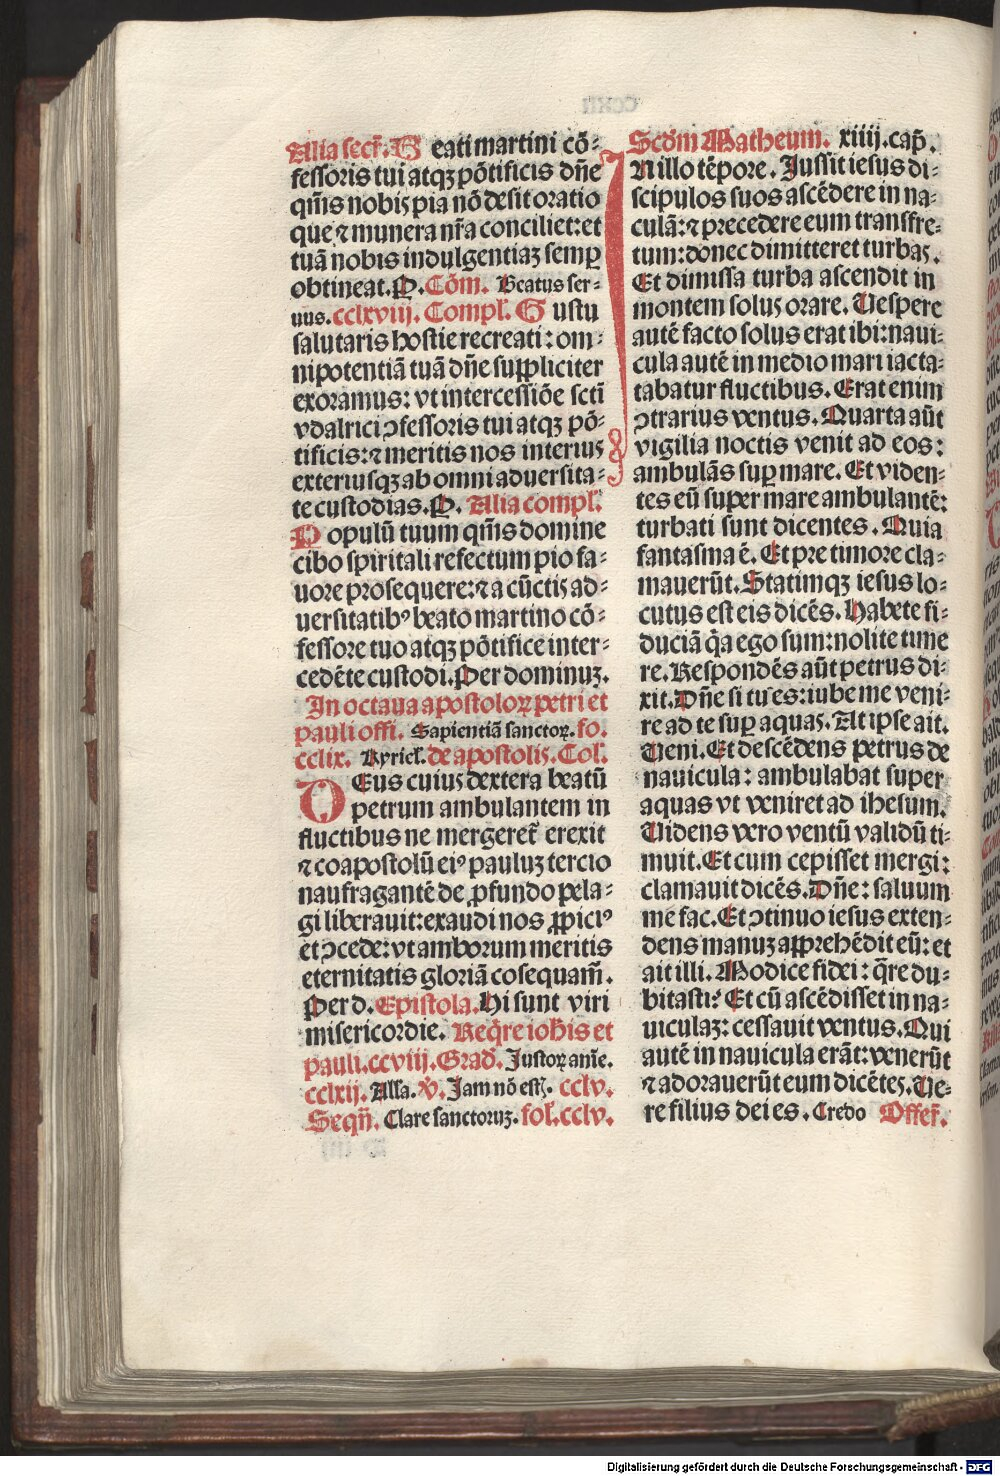 Alia secr̃. B eati martini cō⸗
fessoris tui atqꝫ pōtificis dn̄e
qm̄s nobis pia nō desit oratio
que ⁊ munera nr̄a conciliet: et
tuā nobis indulgentiaꝫ semꝑ
obtineat. P. Cōm. Beatus ser⸗
uus. cclxviij. Compl̄. G ustu
salutaris hostie recreati: om⸗
nipotentiā tuā dn̄e suppliciter
exoramus: vt intercessiōe scti
vdalrici ↄfessoris tui atqꝫ pō⸗
tificis: ⁊ meritis nos interius
exteriusqꝫ ab omni aduersita⸗
te custodias. P. Alia compl̄.
P opulū tuum qm̄s domine
cibo spiritali refectum pio fa⸗
uore prosequere: ⁊ a cūctis ad⸗
uersitatibꝰ beato martino cō⸗
fessore tuo atqꝫ pōtifice inter⸗
cedēte custodi. Per dominuꝫ.
In octaua apostoloꝝ petri et
pauli offi. Sapientiā sanctoꝝ. fo.
cclix. Kyriel̄. de apostolis. Col̄.
DEus cuius dextera beatū
petrum ambulantem in
fluctibus ne mergeret̄ erexit
⁊ coapostolū eiꝰ pauluꝫ tercio
naufragantē de ꝓfundo pela⸗
gi liberauit: exaudi nos ꝓpiciꝰ
et ↄcede: vt amborum meritis
eternitatis gloriā cōsequam̄.
Per d. Epistola. Hi sunt viri
misericordie. Req̄re ioh̄is et
pauli. ccviij. Grad̄. Justoꝝ ani͞e.
cclxij. All̄a. ℣. Jam nō estꝭ. cclv.
Seqn̄. Clare sanctoruꝫ. fol̄. cclv.
Scd̄m Matheum. xiiij. cap̄.
IN illo tēpore. Jussit iesus di⸗
scipulos suos ascēdere in na⸗
culā: ⁊ precedere eum transfre⸗
tum: donec dimitteret turbas.
Et dimissa turba ascendit in
montem solus orare. Vespere
autē facto solus erat ibi: naui⸗
cula autē in medio mari iacta⸗
tabatur fluctibus. Erat enim
ↄtrarius ventus. Quarta aūt
vigilia noctis venit ad eos:
ambulās suꝑ mare. Et viden⸗
tes eū super mare ambulantē:
turbati sunt dicentes. Quia
fantasma ē. Et pre timore cla⸗
mauerūt. Statimqꝫ iesus lo⸗
cutus est eis dicēs. Habete fi⸗
duciā q̄a ego sum: nolite time
re. Respondēs aūt petrus di⸗
xit. Dn̄e si tu es: iube me veni⸗
re ad te suꝑ aquas. At ipse ait.
Veni. Et descēdens petrus de
nauicula: ambulabat super
aquas vt veniret ad ihesum.
Videns vero ventū validū ti⸗
muit. Et cum cepisset mergi:
clamauit dicēs. Dn̄e: saluum
me fac. Et ↄtinuo iesus exten⸗
dens manuꝫ apprehēdit eū: et
ait illi. Modice fidei: q̄re du⸗
bitasti? Et cū ascēdisset in na⸗
uiculaꝫ: cessauit ventus. Qui
autē in nauicula erāt: venerūt
⁊ adorauerūt eum dicētes. Ve⸗
re filius dei es. Credo Offer̄.
Digitalisierung gefördert durch die Deutsche Forschungsgemeinschaft - DFG